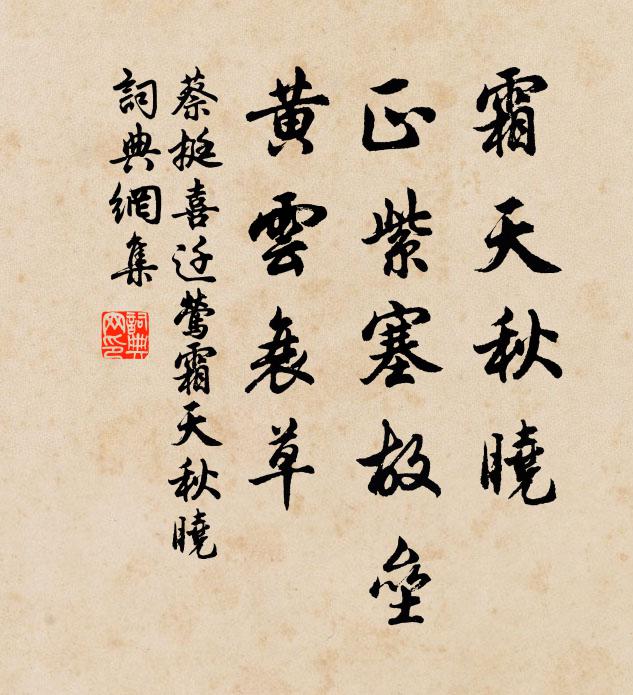 霜天秋曉
正紫塞故壘
黃雲衰草
蔡挺喜迁鶯霜天秋曉
詞典網集
詞典網印